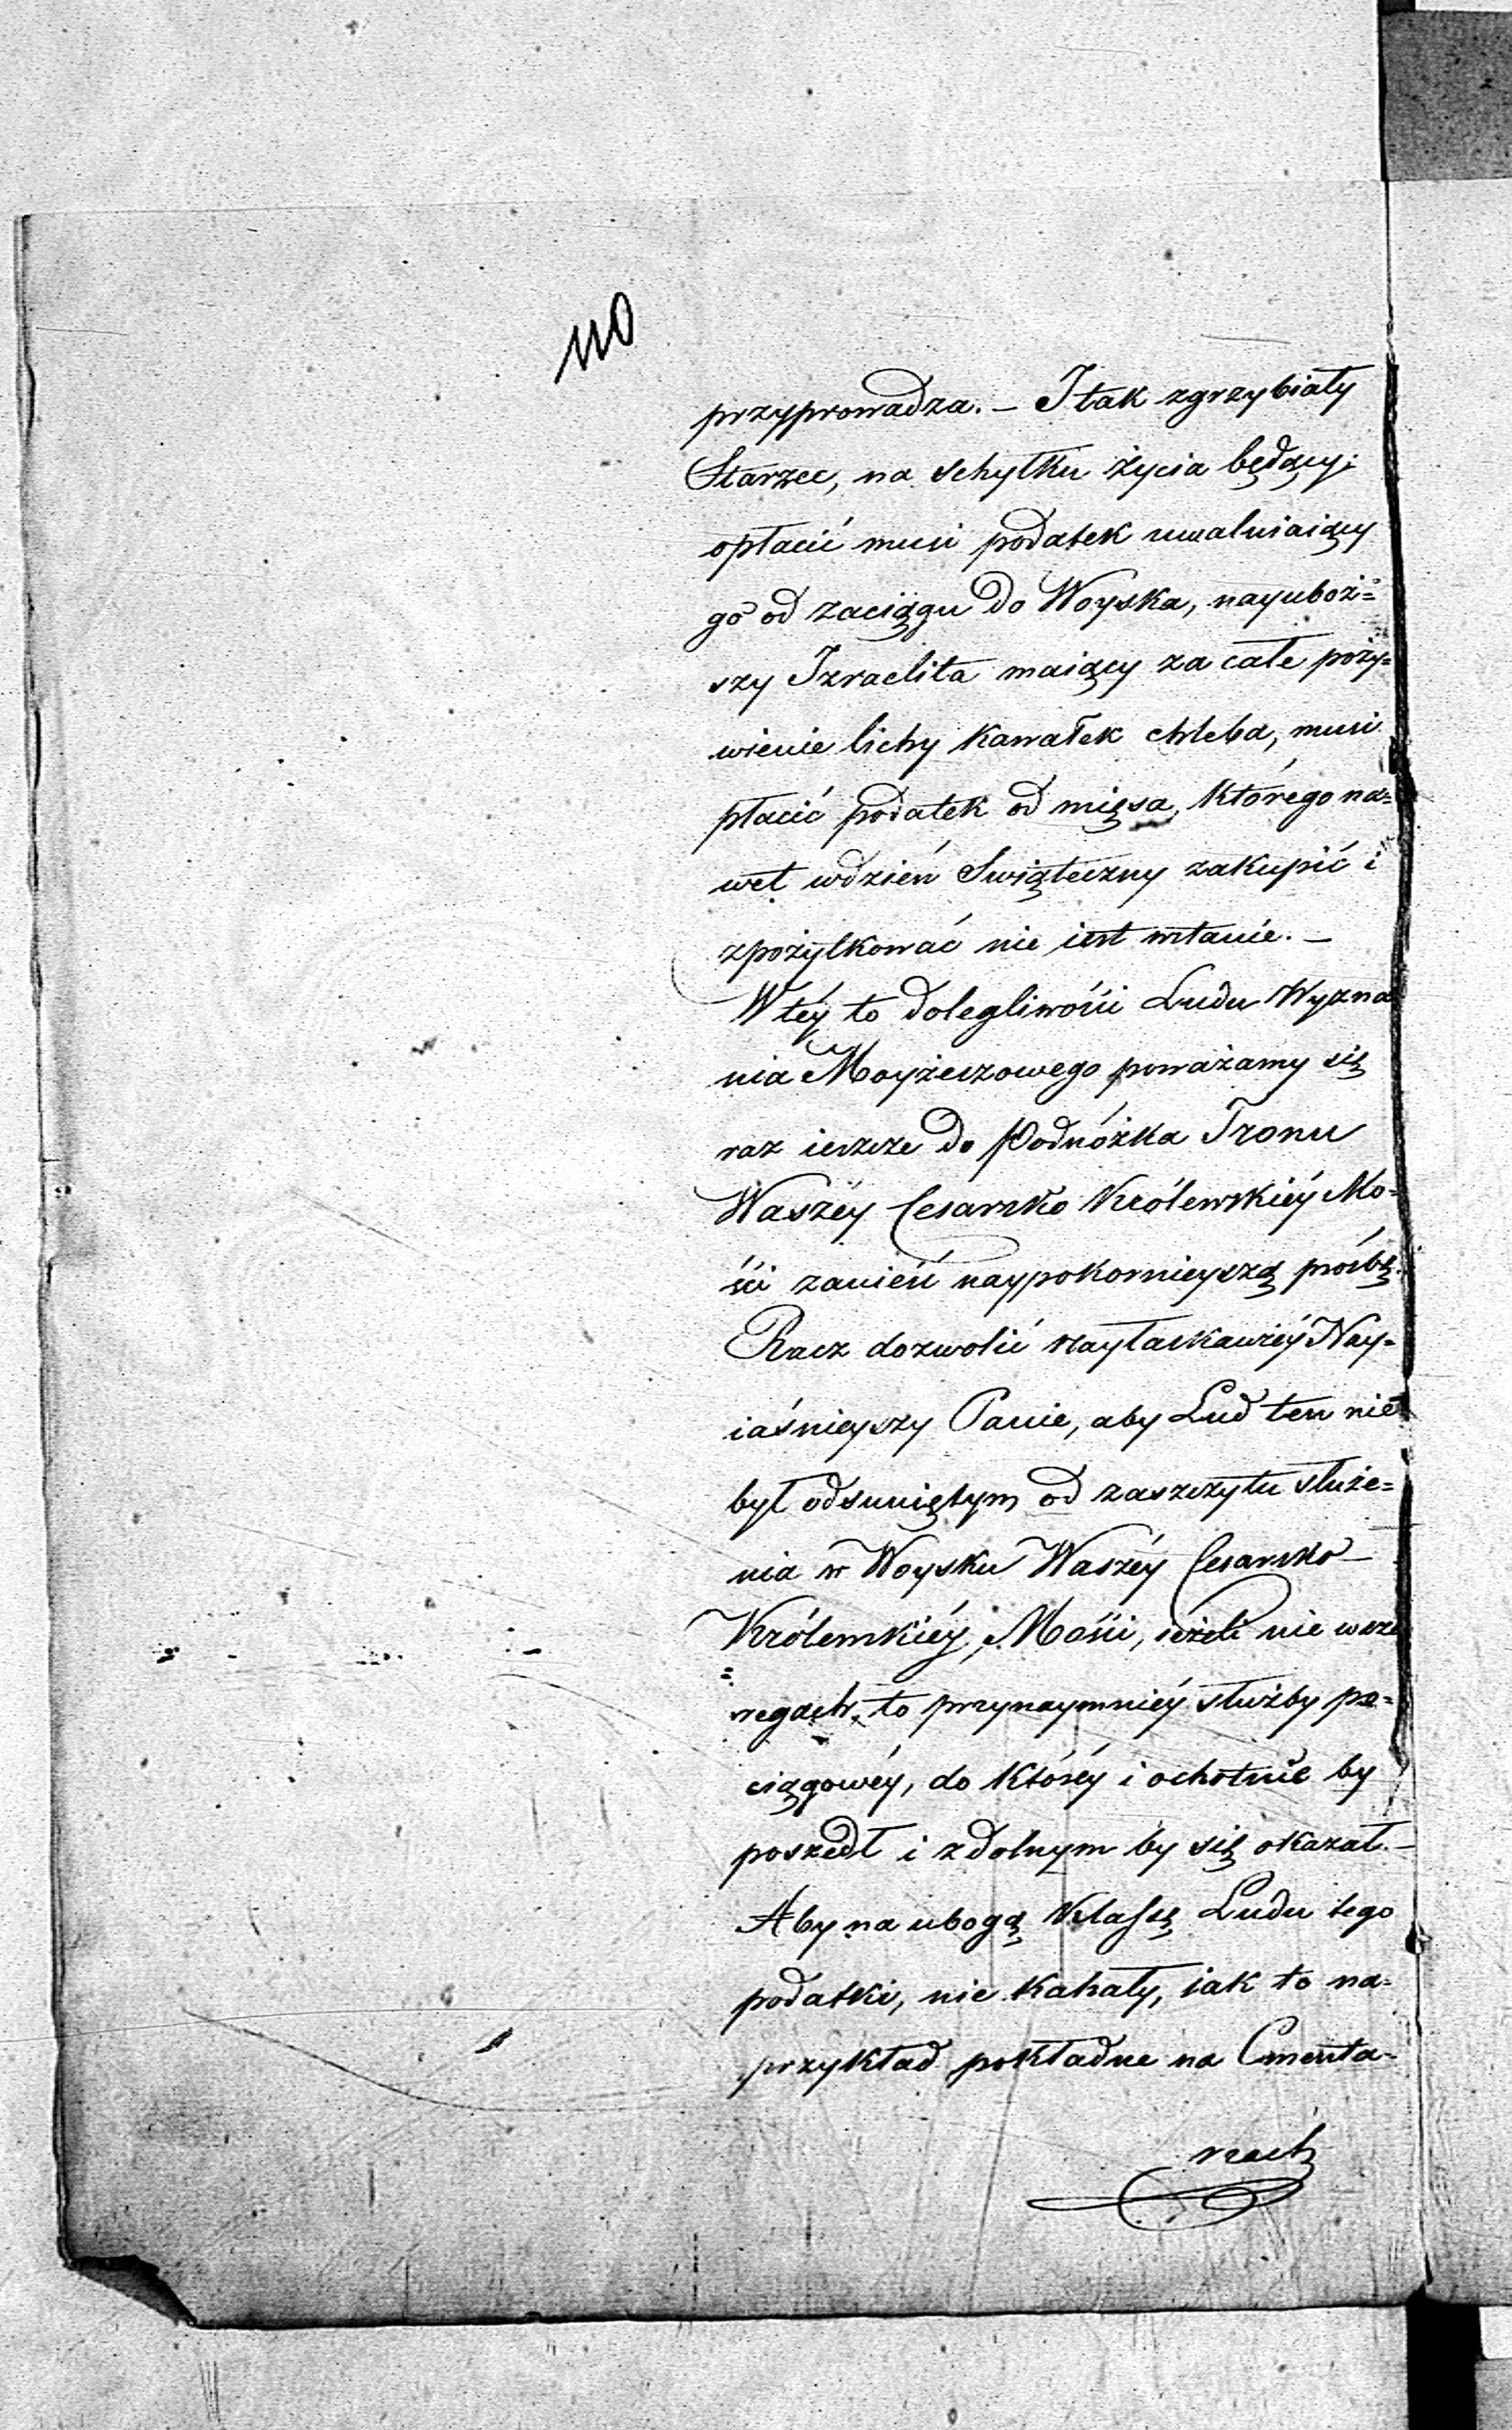 110
przyprowadza. – I tak zgrzybiały
Starzec, na schyłku życia będący;
opłacić musi podatek uwalniaiący
go od zaciągu do Woyska, nayuboż=
szy Izraelita maiący za całe poży=
wienie lichy kawałek chleba, musi
płacić podatek od mięsa, którego na=
wet wdzień Swiąteczny zakupić i
zpożytkować nie iest wstanie. –
W téy to dolegliwości Ludu Wyzna
nia Moyżeszowego poważamy się
raz ieszcze do Podnóżka Tronu
Waszéy Cesarsko Królewskiéy Mo=
ści zanieść naypokornieyszą prośbę.
Racz dozwolić nayłaskawiéy Nay=
iaśnieyszy Panie, aby Lud ten nie
był odsuniętym od zaszczytu służe=
nia w Woysku Waszéy Cesarsko –
Królewskiéy, Mości, ieżeli nie wsze
=regach, to przynaymniéy służby po=
ciągowéy, do któréy i ochotnie by
poszedł i zdolnym by się okazał. –
Aby na ubogą Klassę Ludu tego
podatki, nie kahały, iak to na=
przykład pokładne na Cmenta=
rzach